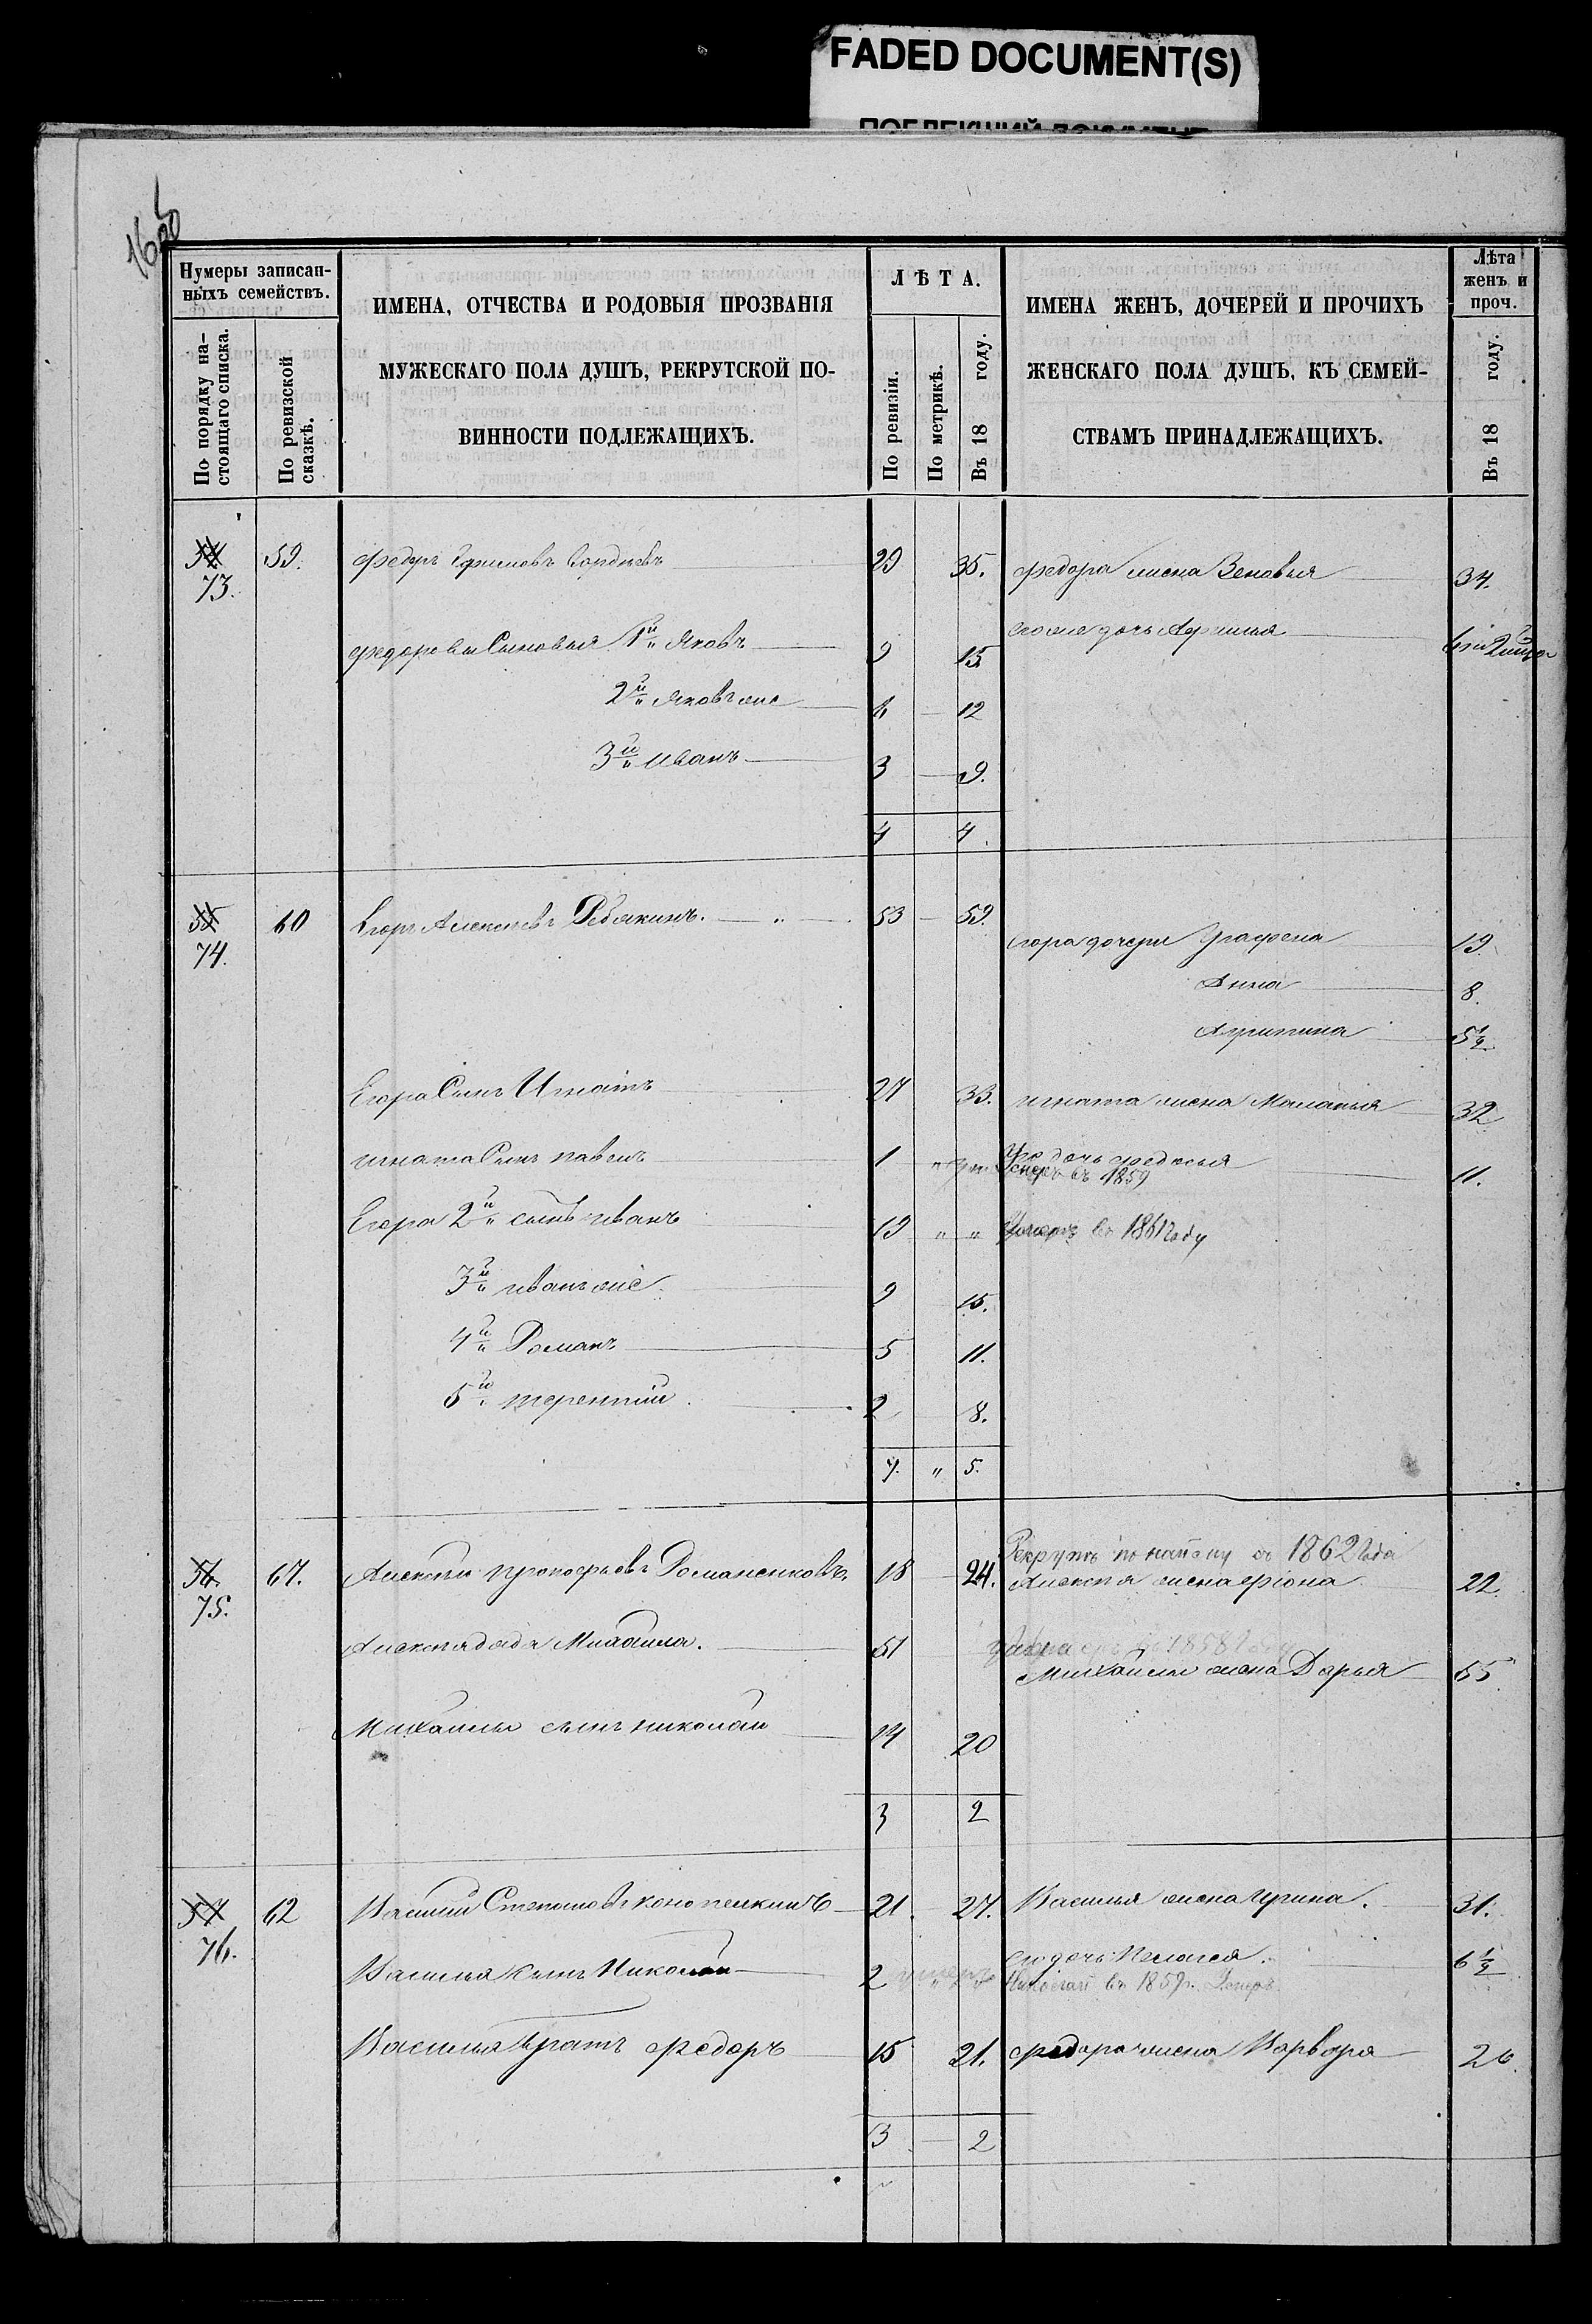 FADED DOCUMENT(S)
Нумеры записан-
ныхъ семействъ.
По порядку на-
стоящаго списка.
По ревизской
сказкѣ.
ИМЕНА, ОТЧЕСТВА И РОДОВЫЯ ПРОЗВАНІЯ
МУЖЕСКАГО ПОЛА ДУШЪ, РЕКРУТСКОЙ ПО-
ВИННОСТИ ПОДЛЕЖАЩИХЪ.
ЛѢТА.
По ревизіи.
По метрикѣ.
Въ 18 году.
ИМЕНА ЖЕНЪ, ДОЧЕРЕЙ И ПРОЧИХЪ
ЖЕНСКАГО ПОЛА ДУШЪ, КЪ СЕМЕЙ-
СТВАМЪ ПРИНАДЛЕЖАЩИХЪ.
Лѣта
женъ и
проч.
Въ 18 году.
54 59. федоръ Ефимовъ 29 35. федора жена Зеновья 34.
73.
федоровы Сыновья 1й Яковъ 9 15 дочь
2й Яковъ же 6 12
3й иванъ 3 9.
4 4.
55 60 Егоръ Алексѣевъ 53 59.
74. Егора дочери Графена 19.
Анна 8.
Агрипина 5½
Егора Сынъ Игнатъ 27 33. игната жена Маланья 32
игната Сынъ павелъ 1 " Его дочь федосья 11.
въ 1859
Егора 2й сынъ иванъ 19 " " Умеръ въ 1861 году
3й иванъ же 9 15.
4й Романъ 5 11.
5й терентии 2 8.
7. " 5.
Рекрутъ по найому съ 1862 года
56. 61. Алексѣи прокофьевъ Романенковъ 18 24. Алексѣя жена 22.
75.
Алексѣя дядя Михаила. 51 1858
Михаилы жена Дарья 55
Михаилы сынъ николаи 14 20
3 2
57 62 Василии Степановъ конопелкинъ 21. 27. Василья жена ирина. 31.
76. дочь Пелагея 6½
Василья сынъ Николаи 2 умеръ Николай въ 1859 г. Умеръ
Василья братъ федоръ 15 21. федора жена Варвара 26.
3 2